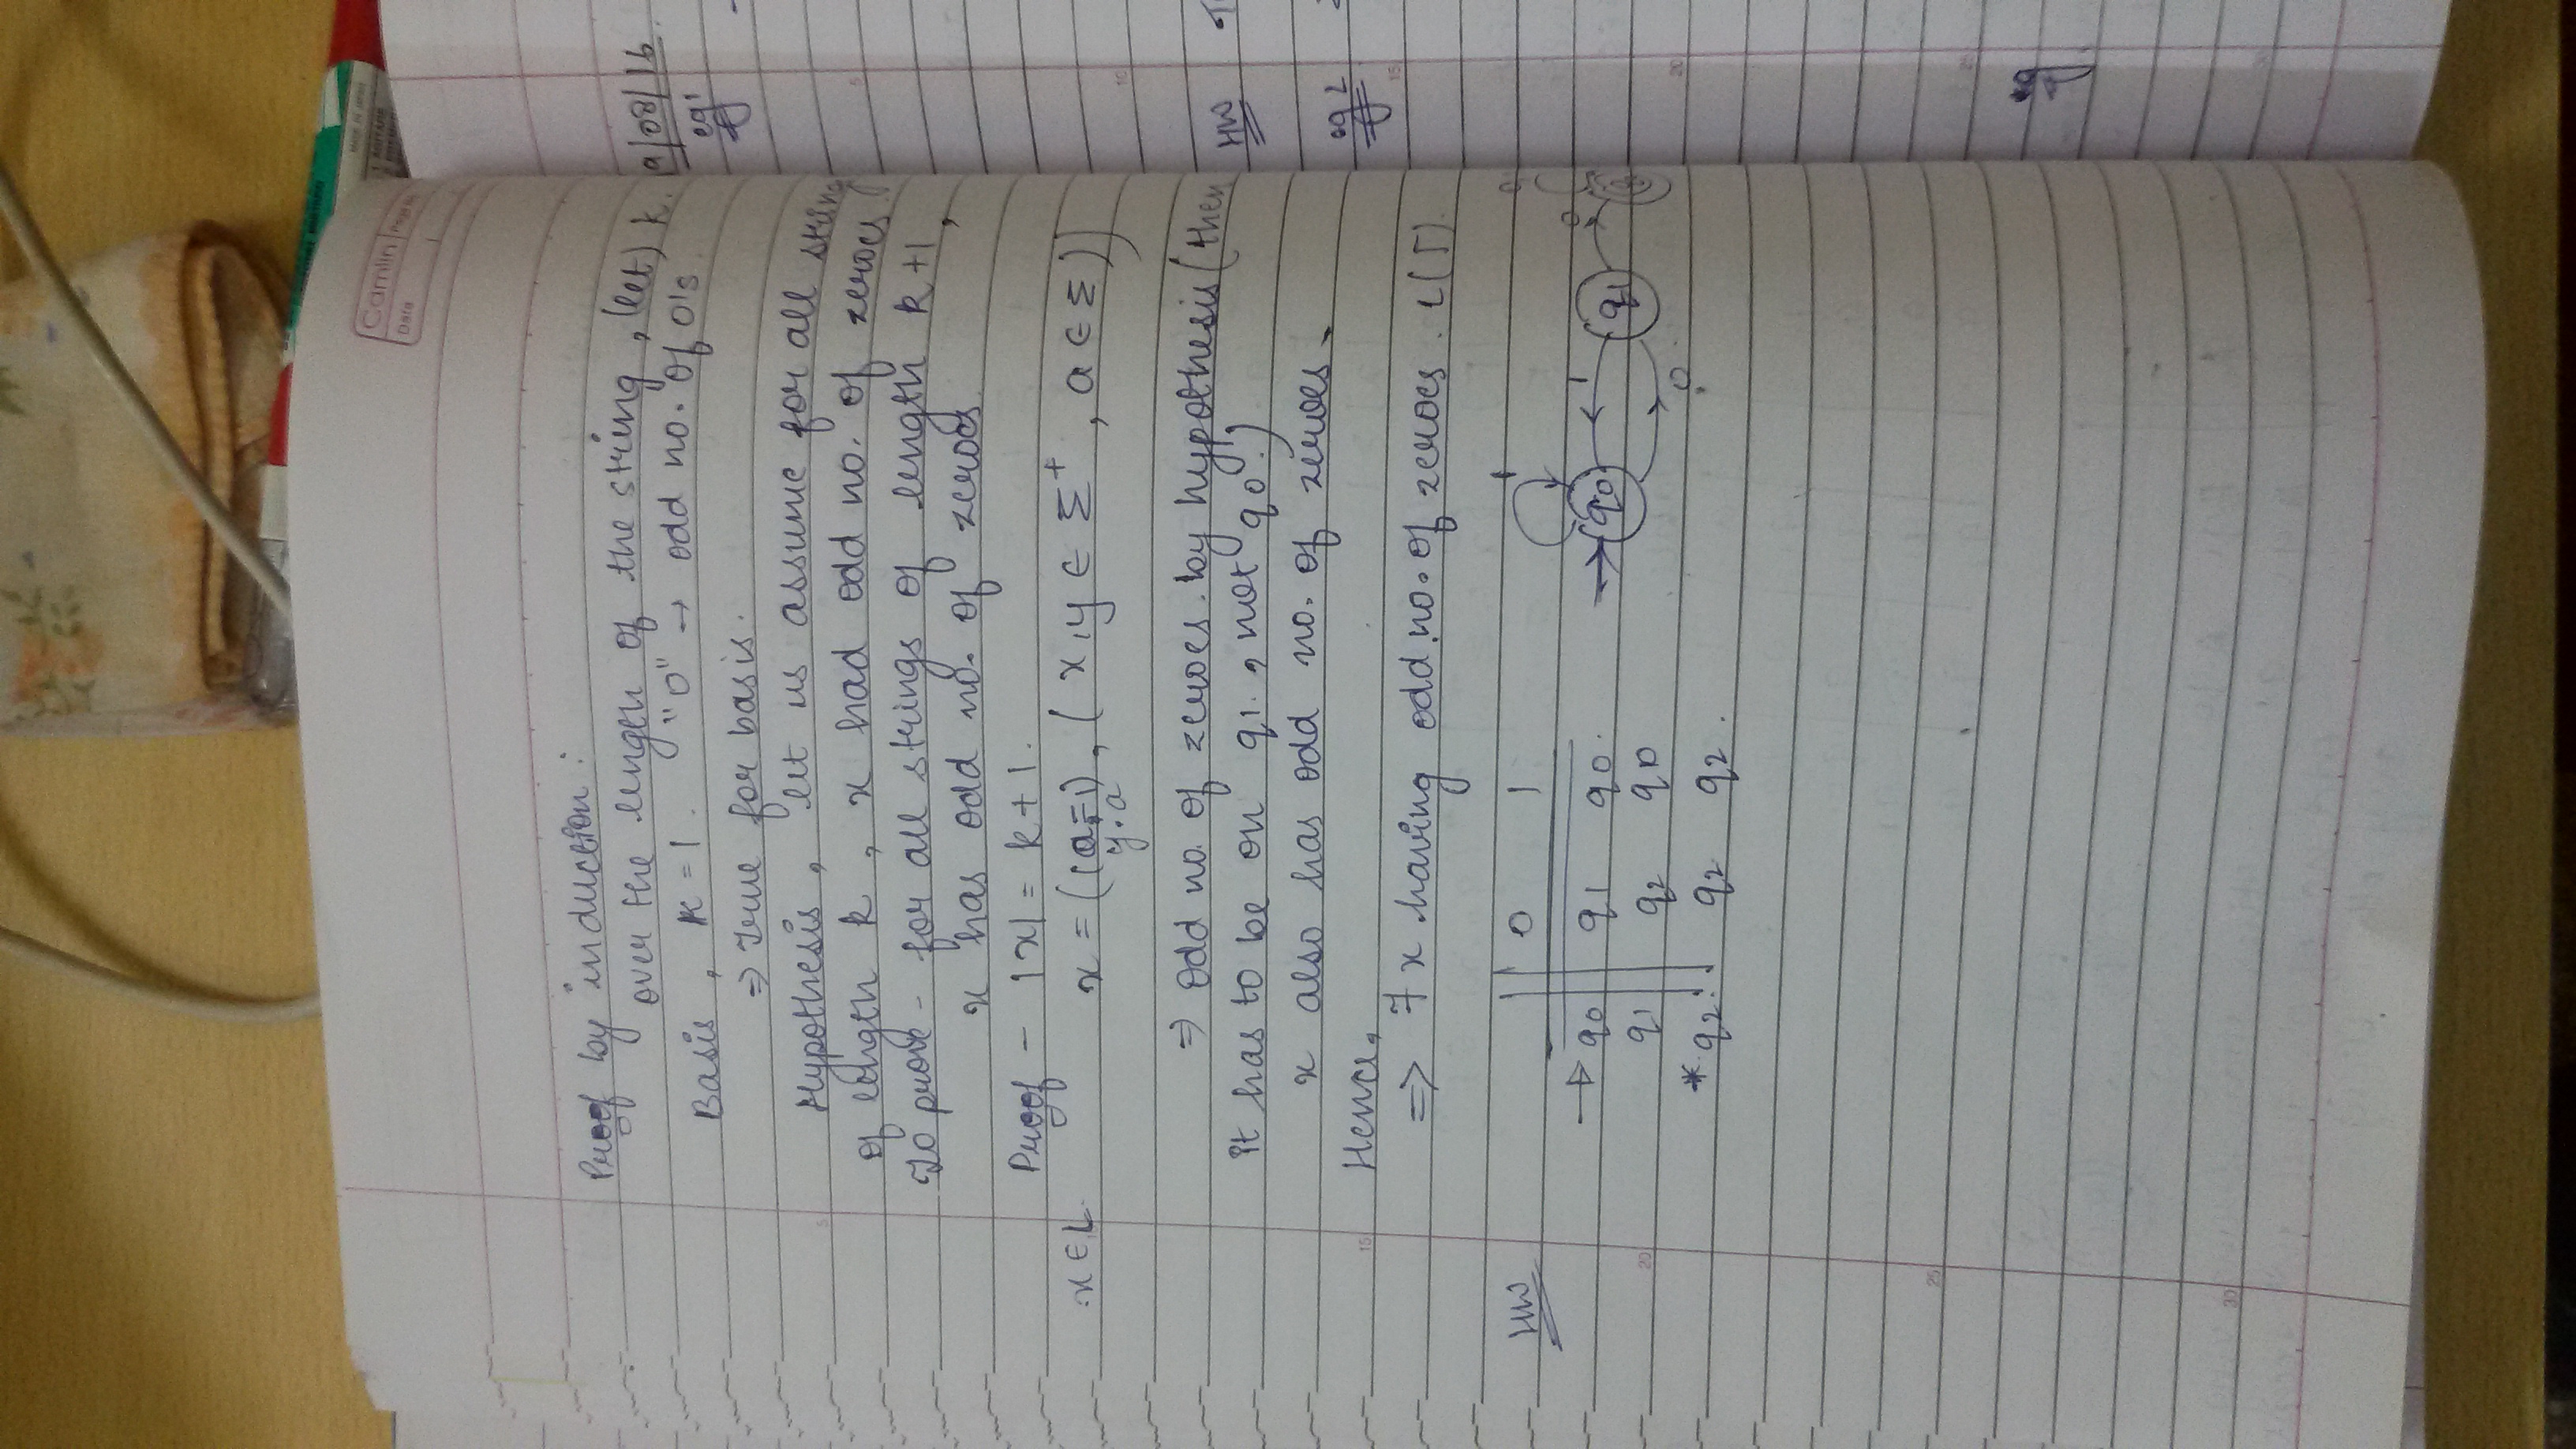 Camlin
Page No.
Date
Proof by induction :
over the length of the string, (let) k.
Basis, k = 1. "0" → odd no. of 0's
⇒ True for basis.
Hypothesis, let us assume for all string
of length k, x had odd no. of zeroes.
To prove - for all strings of length k+1,
x has odd no. of zeroes.
Proof - |x| = k+1.
x ∈ L. x = ((a=1), (x,y ∈ Σ⁺, a ∈ Σ))
y.a
⇒ odd no. of zeroes by hypothesis (then
it has to be on q1, not q0.)
x also has odd no. of zeroes.
Hence,
⇒ 7 x having odd no. of zeroes.
HW
0 1
→ q0 q1 q0.
q1 q2 q0
* q2. q2 q2.
1
q0 1 q1 0
0
0
5
15
20
25
30
9/08/16
eg1
HW
eg 2
eg
5
10
15
20
25